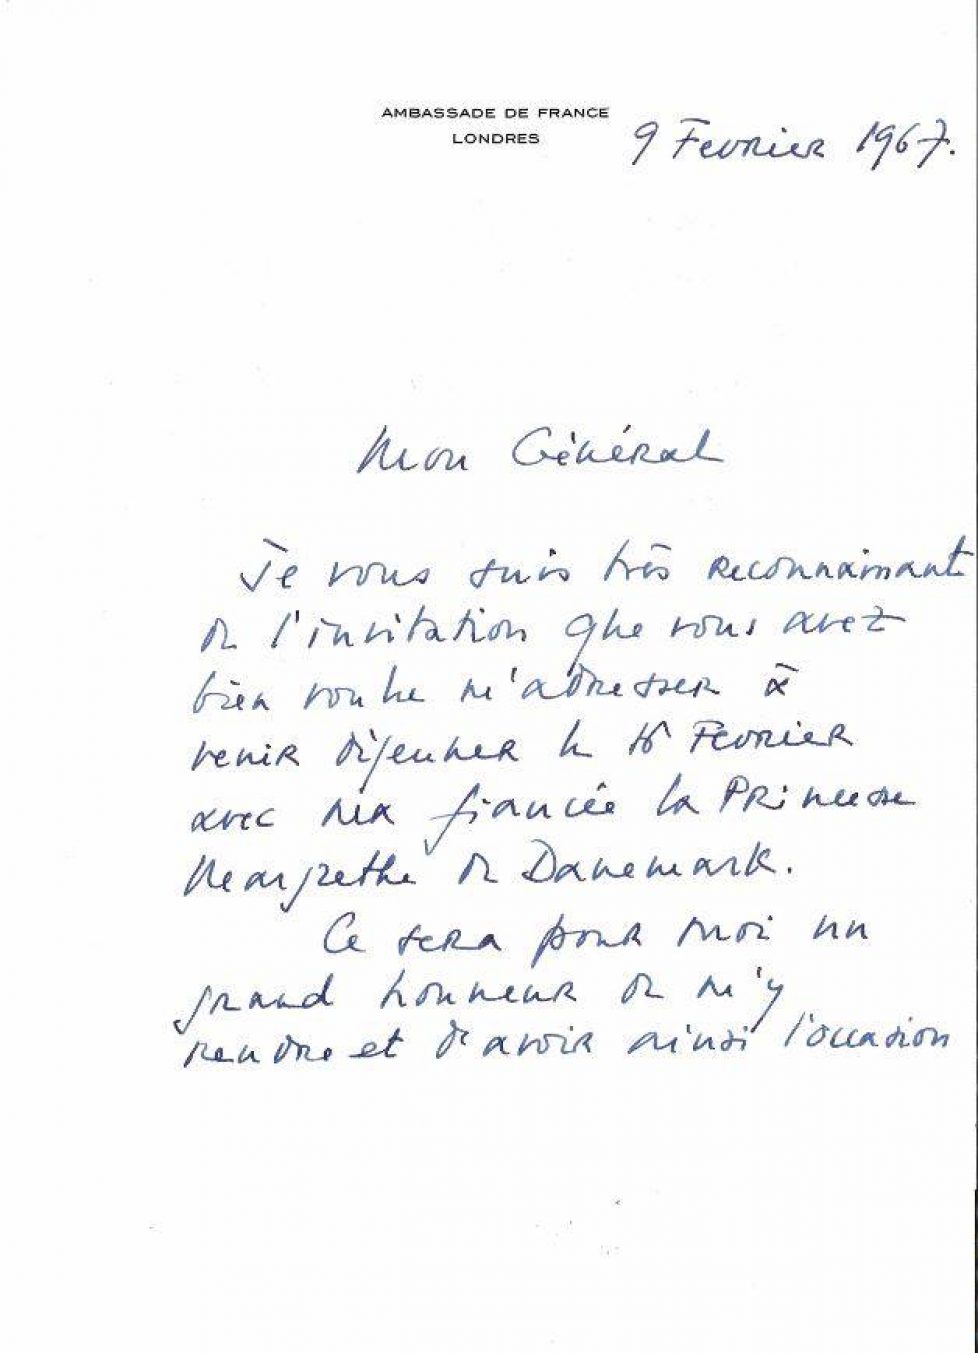 AMBASSADE DE FRANCE
LONDRES
9 Fevrier 1967.
Mon Général
Je vous suis très reconnaissant
de l'invitation que vous avez
bien voulu m'adresser à
venir déjeuner le 16 Fevrier
avec ma fiancée la Princesse
Margrethe de Danemark.
Ce sera pour moi un
grand honneur de m'y
rendre et d'avoir ainsi l'occasion